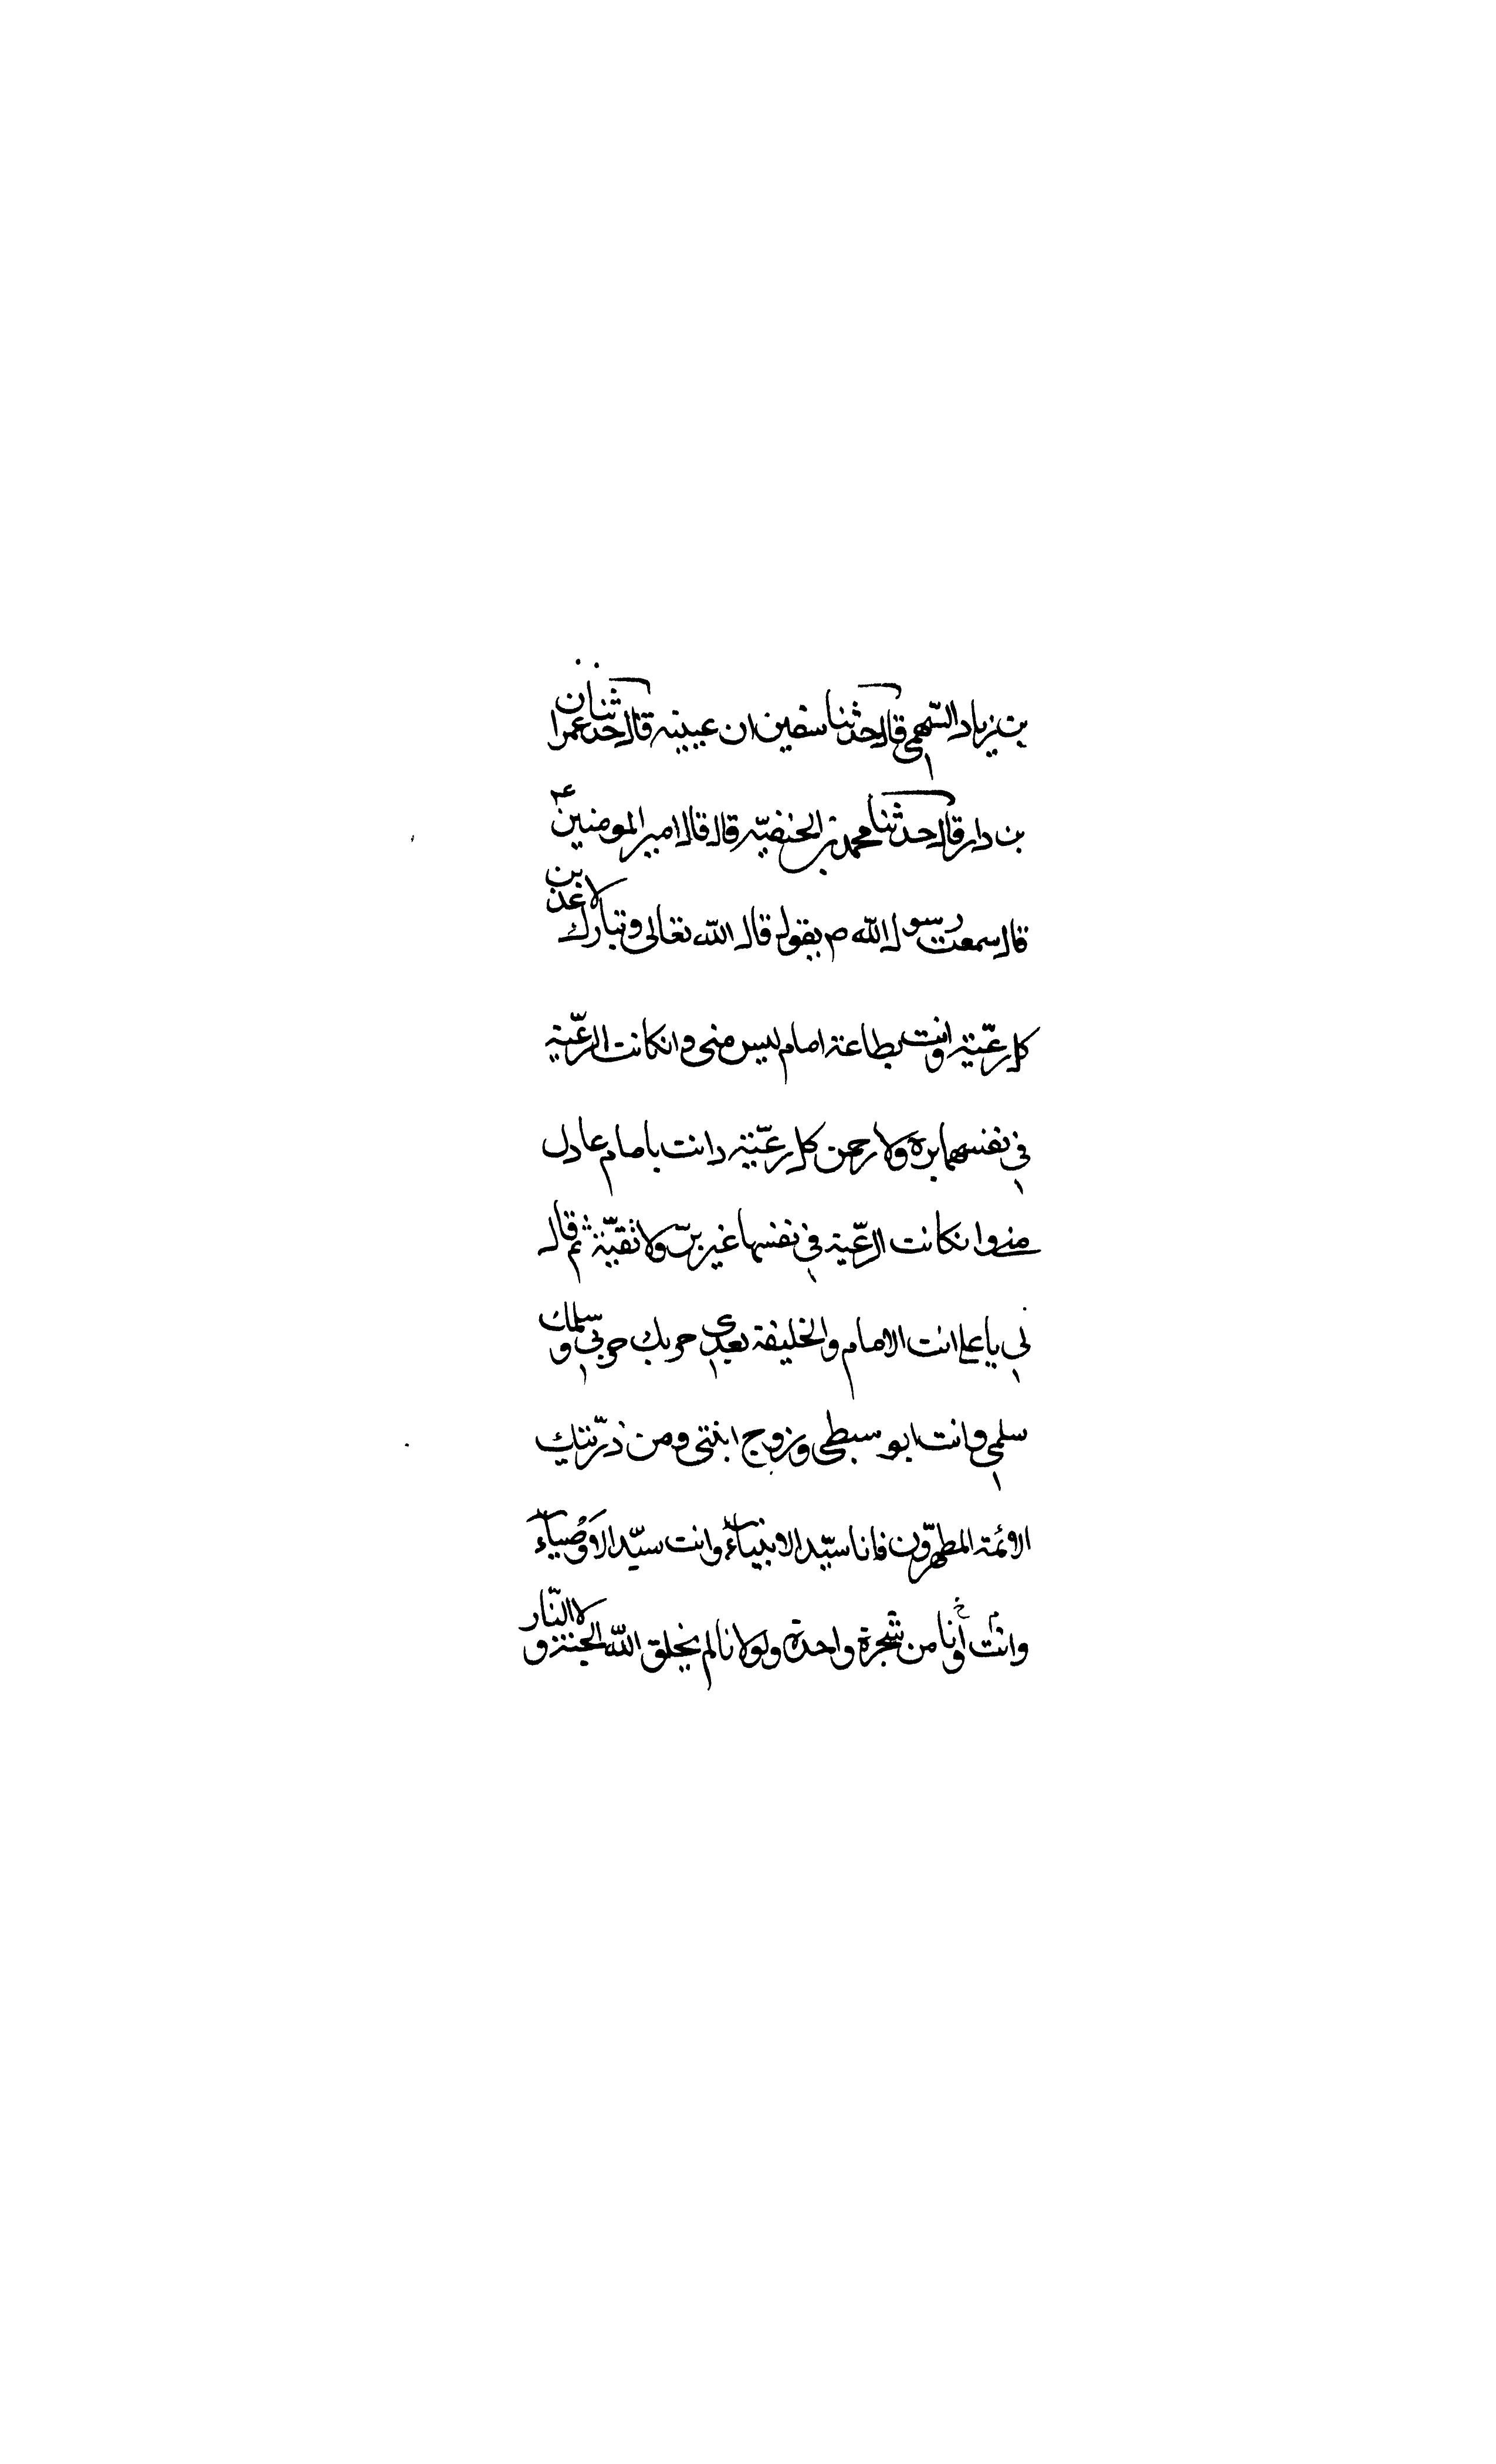 بن زياد السّهمي قال حدثنا سفين ان عيينه قال حدثنا عمران
بن دار قال حدثنا محمد بن الحنفيّه قال قال امير المومنين ع
قال سمعت رسول الله ص يقول قال الله تعالى وتبارك لاعذبن
كل رعيّة دانت بطاعة امام ليس منى وانكانت الرعيّة
في نفسها بره ولارحمن كل رعيّة دانت بامام عادل
منى وانكانت الرعيّة في نفسها غير برّه ولا تقيّة ثم قال
لي يا على انت الامام والخليفة بعدي حربك حربي وسلمك
سلمي وانت ابو سبطى وزوج ابنتى ومن ذرّيتك
الائمة المطهرّون فانا سيّد الانبياء وانت سيّد الاوصياء
وانت وأنا من شجرة واحدة ولولانا لم يخلق الله الجنة ولا النّار